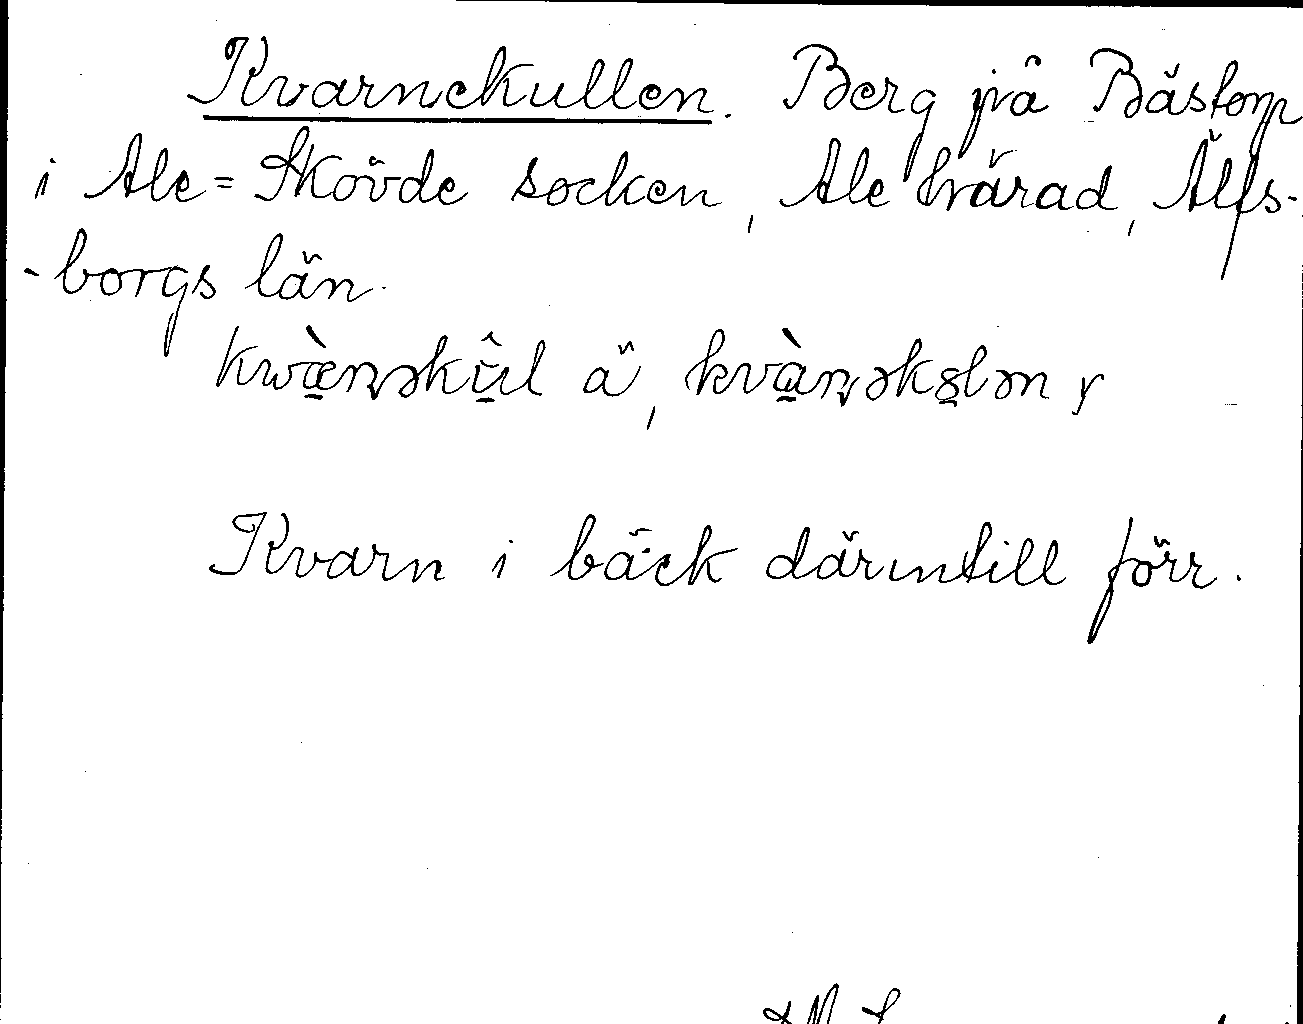 Kvarnekullen. Berg på Båstorp
i Ale=Skövde socken, Ale härad, Älfs-
-borgs län.
kwæ̀ṇəkûl ä, kvàṇəkslən y
Kvarn i bäck därintill förr.